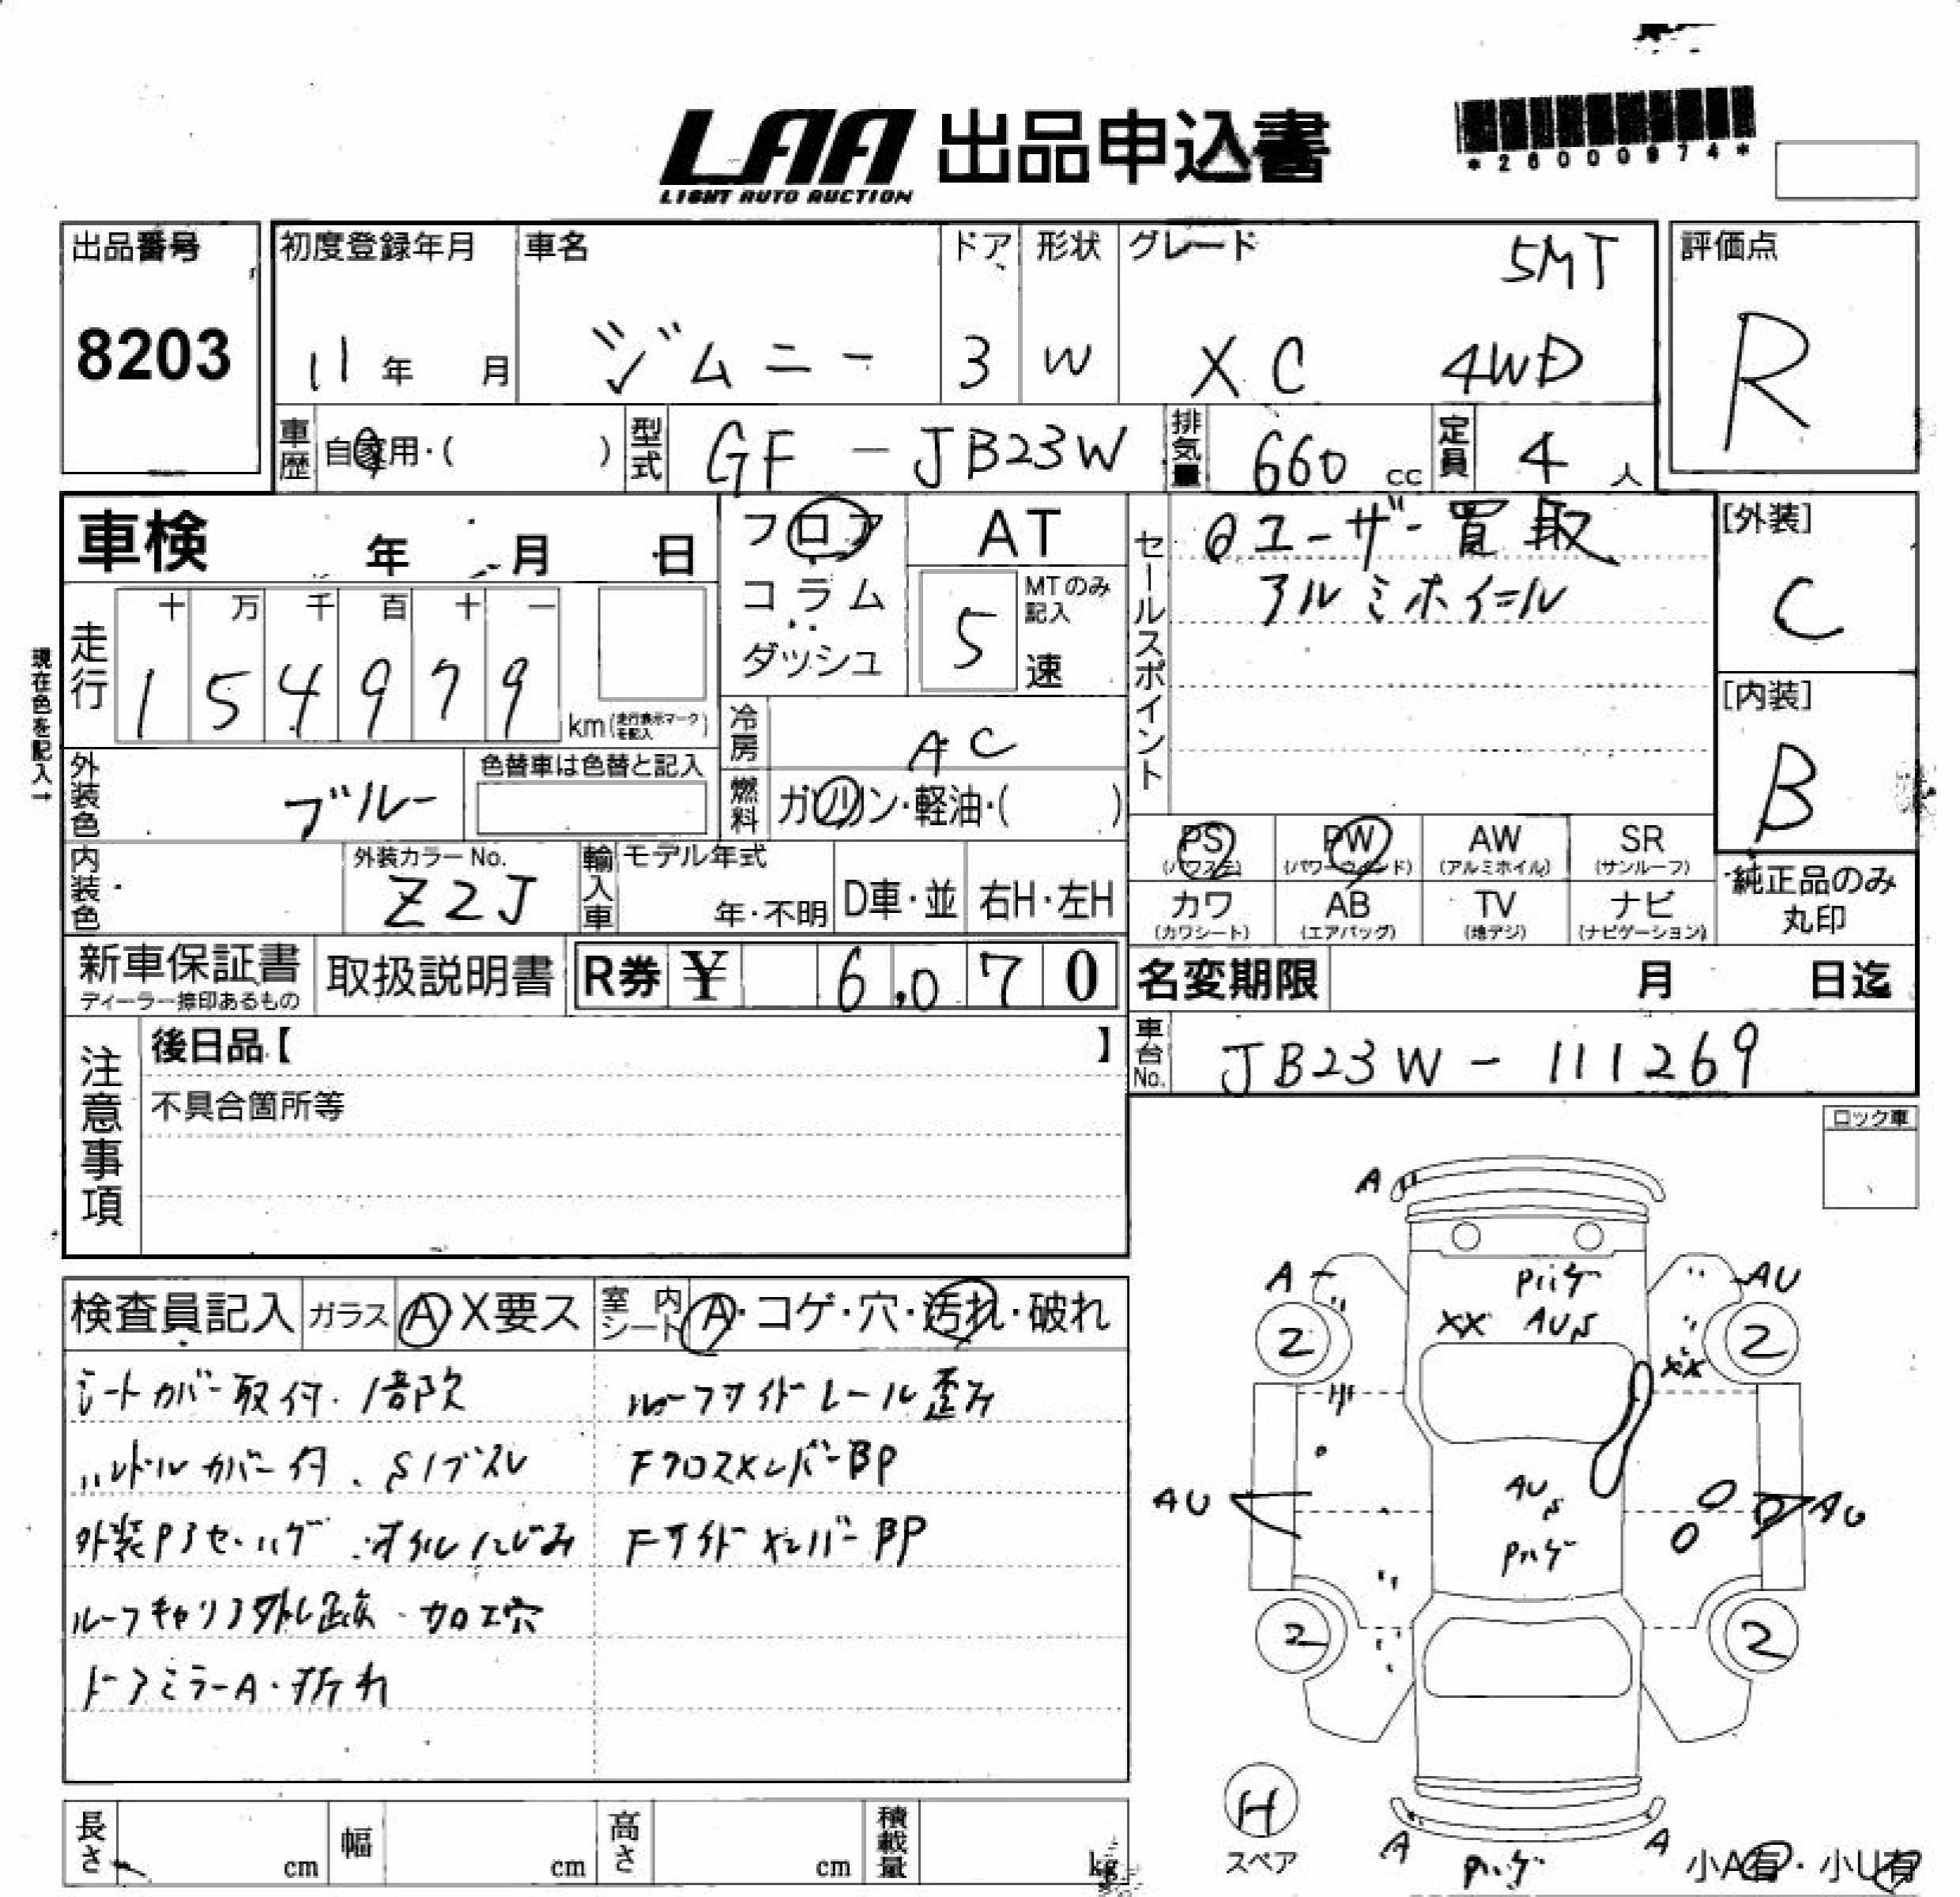 LAA 出品申込書
LIGHT AUTO AUCTION
*26000974*
出品番号
8203
初度登録年月
11年 月
車名
ジムニー
ドア
3
形状
W
グレード
5MT
XC 4WD
評価点
R
車歴 自家用・( )
型式 GF-JB23W
排気量 660 cc
定員 4 人
車検 年 月 日
フロア
コラム
ダッシュ
AT
MTのみ記入
5 速
セールスポイント
ユーザー買取
アルミホイール
[外装]
C
[内装]
B
現在色を記入→
走行
十 万 千 百 十 一
1 5 4 9 7 9
km(走行表示マークを記入)
冷房 AC
外装色 ブルー
色替車は色替と記入
燃料 ガソリン・軽油・( )
PS (パワステ)
PW (パワーウインド)
AW (アルミホイル)
SR (サンルーフ)
カワ (カワシート)
AB (エアバッグ)
TV (地デジ)
ナビ (ナビゲーション)
純正品のみ丸印
内装色
外装カラーNo.
Z2J
輸入車
モデル年式
年・不明
D車・並
右H・左H
新車保証書
ディーラー捺印あるもの
取扱説明書
R券 ¥ 6,070
名変期限 月 日迄
車台No. JB23W-111269
注意事項
後日品【 】
不具合箇所等
ロック車
検査員記入
ガラス A X要ス
室内シート A・コゲ・穴・汚れ・破れ
シートカバー取付・1部欠
ハンドルカバー付
外装Pアセ・ハゲ・オイルにじみ
ルーフキャリア外し跡・加工穴
ドアミラーA・折れ
ルーフサイドレール歪み
FクロスメンバーBP
FサイドメンバーBP
A
A
Pハゲ
AU
XX AUS
2
2
XX
AU
AUS
AU
Pハゲ
2
2
H
スペア
A
A
Pハゲ
小A有・小U有
長さ cm
幅 cm
高さ cm
積載量 kg